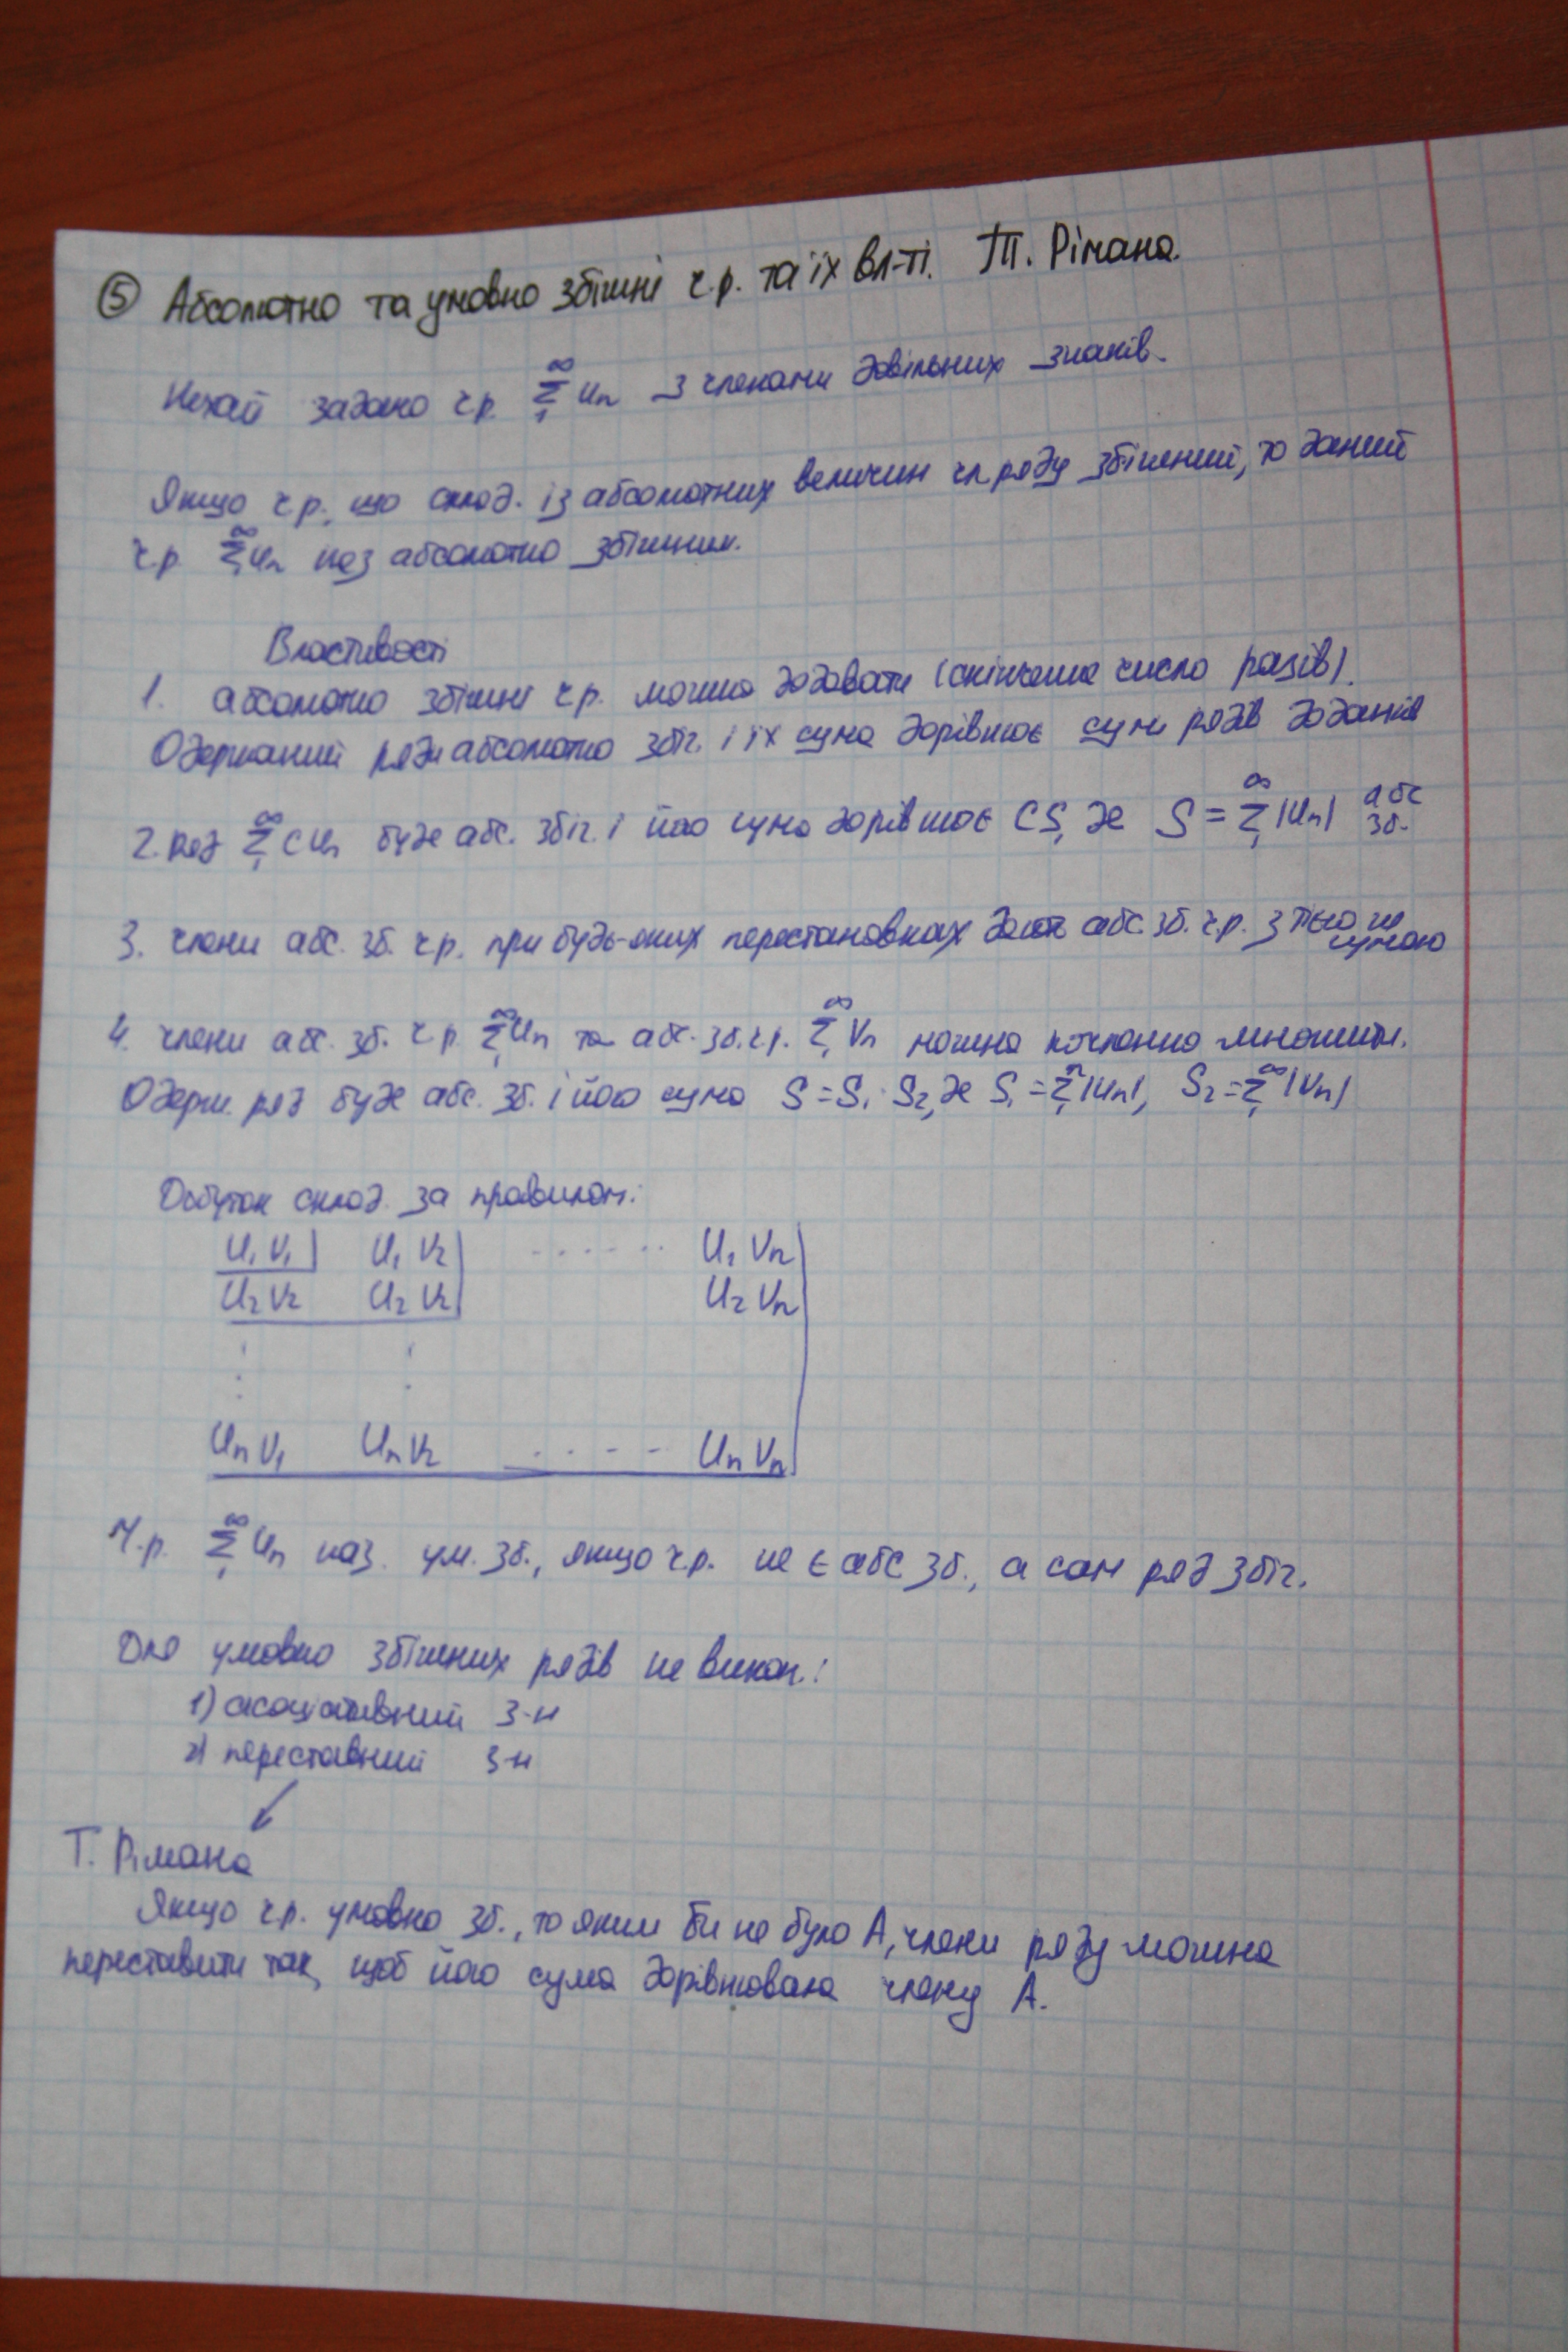 ⑤ Абсолютно та умовно збіжні ч.р. та їх вл-ті. Т. Рімана.
Нехай задано ч.р. ∑₁^∞ Uₙ з членами довільних знаків.
Якщо ч.р., що склад. із абсолютних величин чл ряду збіжний, то даний
ч.р. ∑₁^∞ Uₙ наз абсолютно збіжним.
Властивості
1. абсолютно збіжні ч.р. можна додавати (скінченне число разів).
Одержаний ряд абсолютно збіг. і їх сума дорівнює сумі рядів доданків
2. ряд ∑₁^∞ C Uₙ буде абс. збіг. і його сума дорівнює CS, де S = ∑₁^∞ |Uₙ| абс зб.
3. члени абс. зб. ч.р. при будь-яких перестановках дають абс. зб. ч.р. з тією ж сумою
4. члени абс. зб. ч.р. ∑₁^∞ Uₙ та абс. зб. ч.р. ∑₁^∞ Vₙ можна почленно множити.
Одерж. ряд буде абс. зб. і його сума S = S₁ · S₂, де S₁ = ∑₁^n |Uₙ|, S₂ = ∑₁^∞ |Vₙ|
Добуток склад. за правилом:
U₁ V₁ U₁ V₂ ...... U₁ Vₙ
U₂ V₂ U₂ V₂ U₂ Vₙ
Uₙ V₁ Uₙ V₂ ..... Uₙ Vₙ
Ч.р. ∑₁^∞ Uₙ наз. ум. зб., якщо ч.р. не є абс зб., а сам ряд збіг.
Для умовно збіжних рядів не викон.:
1) асоціативний з-н
2) переставний з-н
Т. Рімана
Якщо ч.р. умовно зб., то яким би не було А, члени ряду можна
переставити так, щоб його сума дорівнювала члену А.